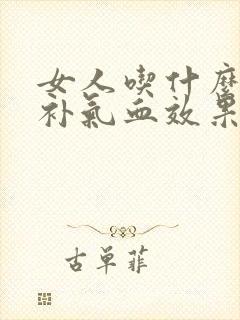 女人喫什麽
补氣血效果
古单菲